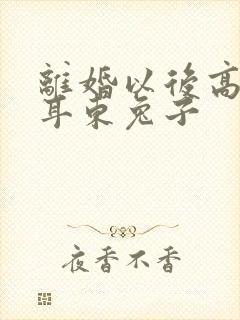 離婚以後高
耳東兔子
夜香不香